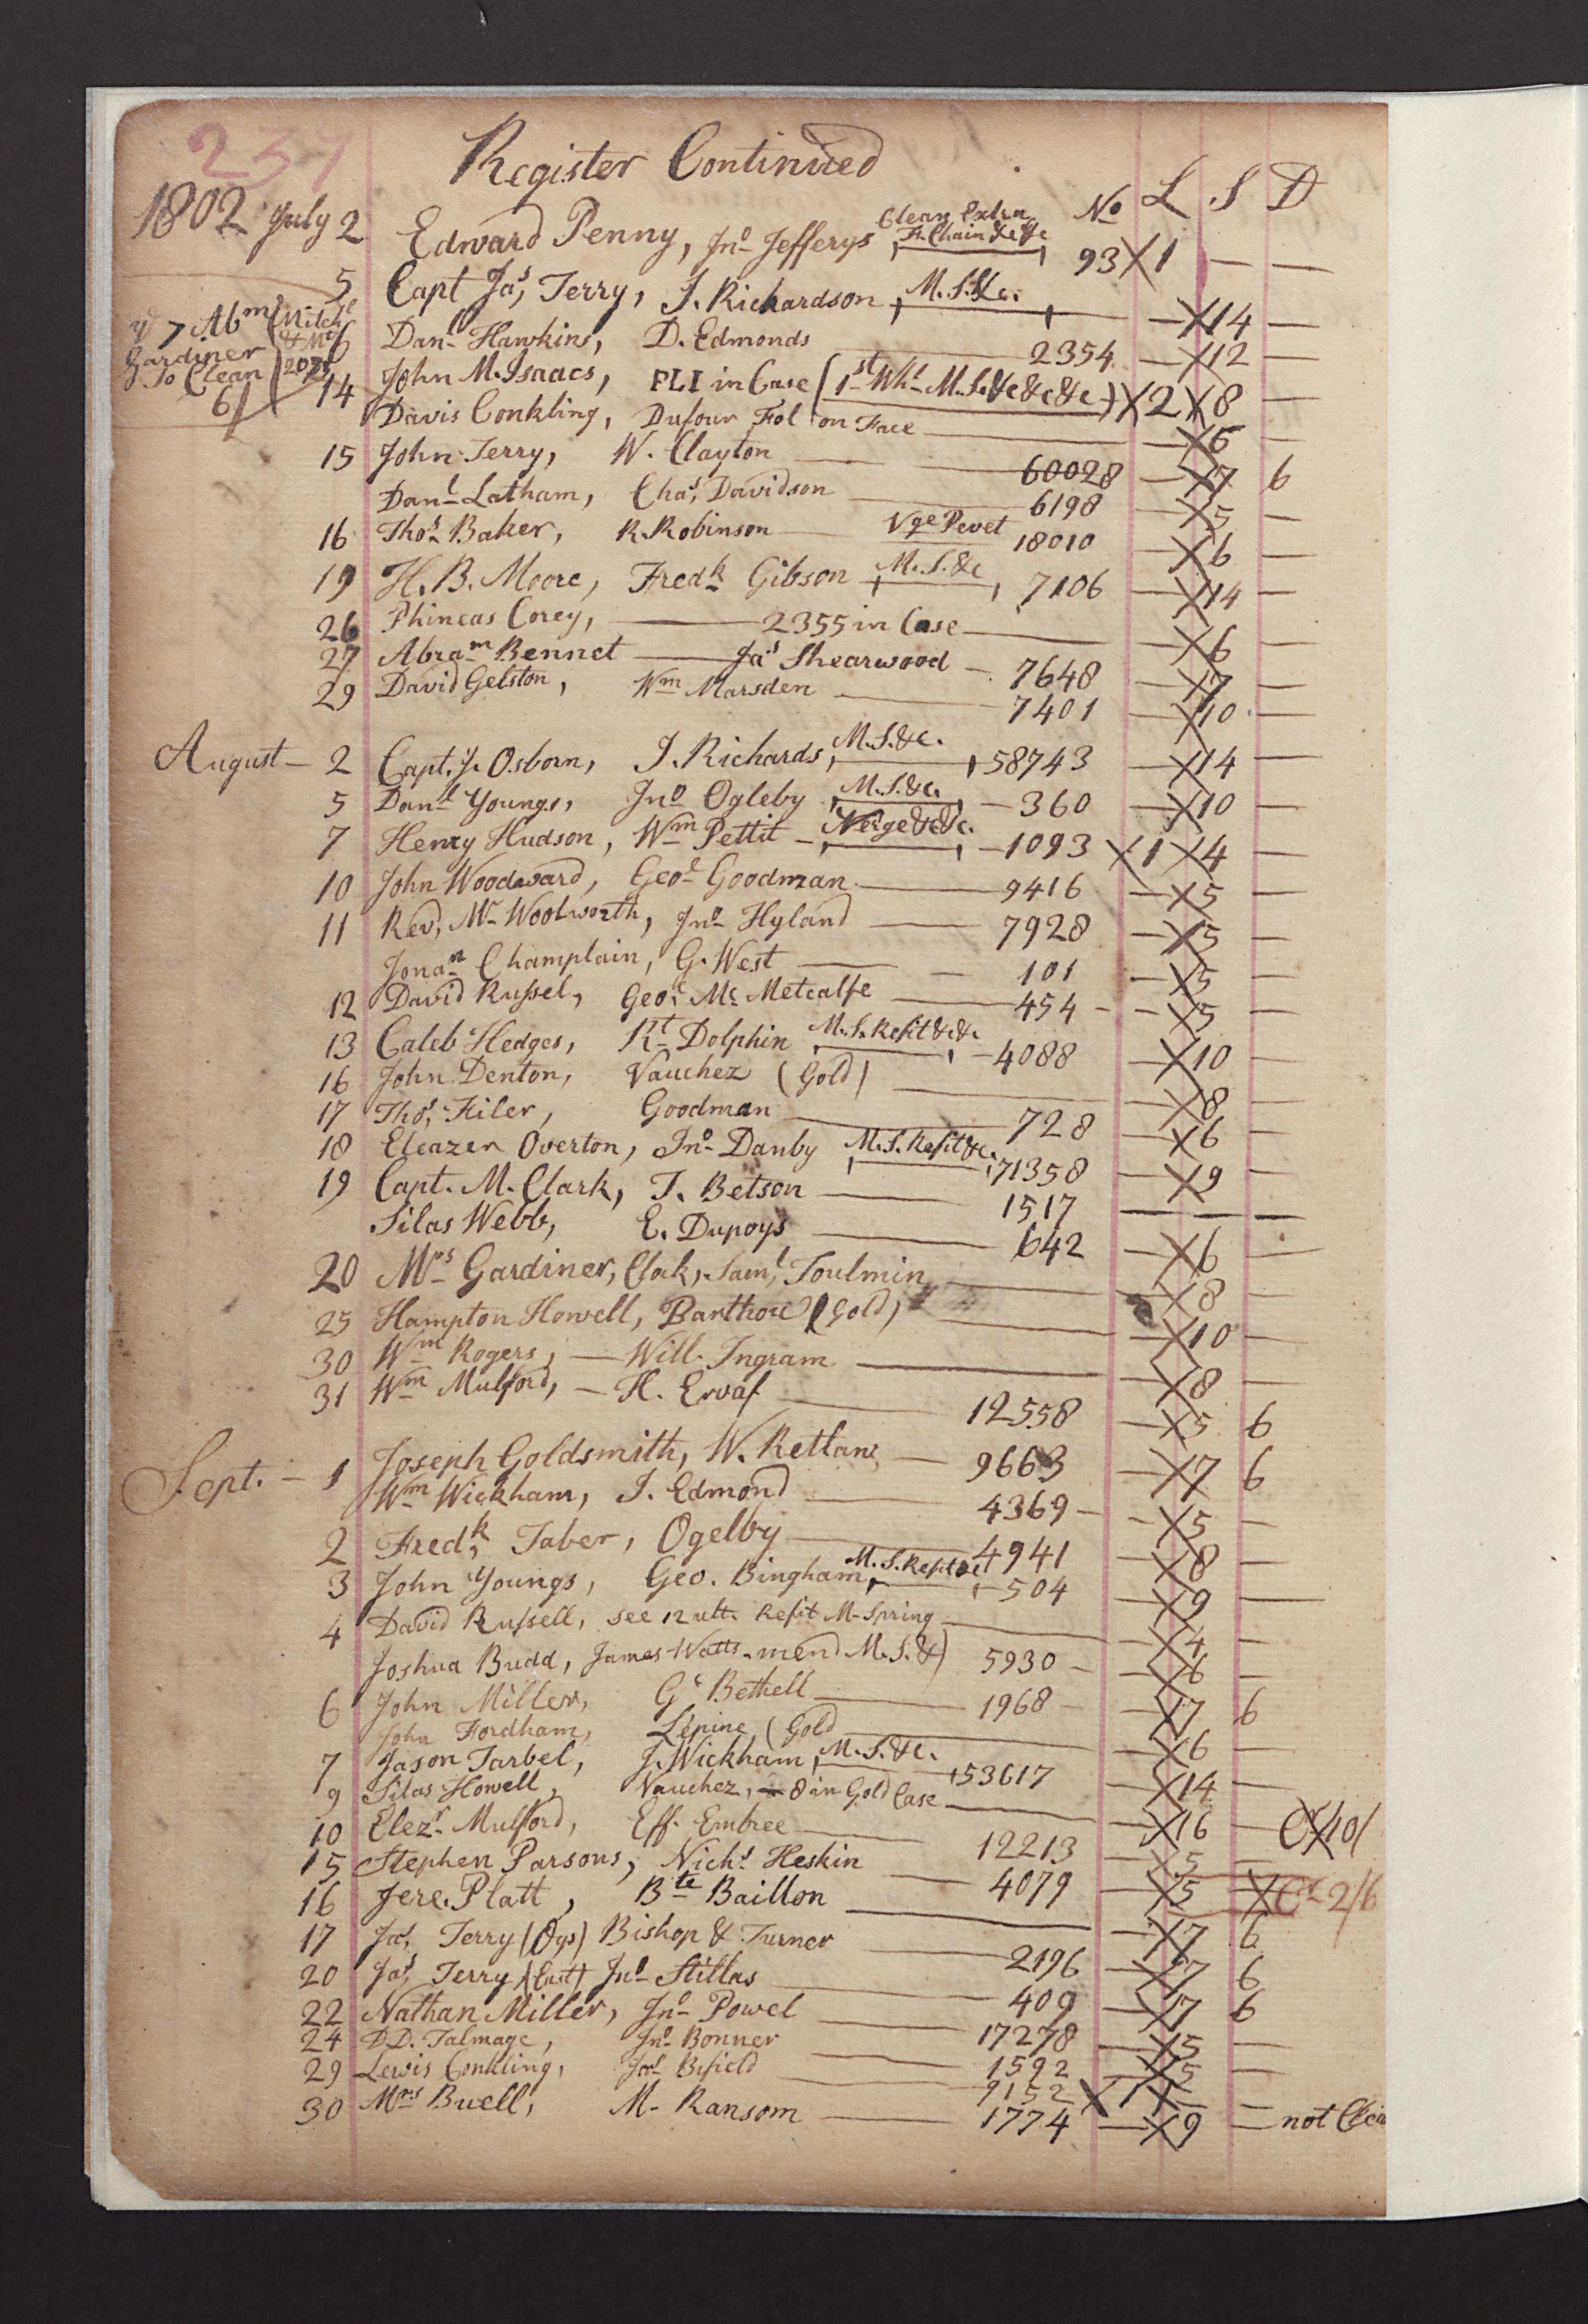 237
Register Continued
No L S D
1802 July 2 Edward Penny, Jno Jefferys Clean Extra Ft Chain &c &c 93 X 1 — —
5 Capt Jas, Terry, J. Richardson M.S.&c. — X 14 —
7 Abm Gardiner To Clean 6/
6 Danl Hawkins, D. Edmonds 2354 — X 12 —
14 John M. Isaacs, PLI in Case (1st Whl M.S.&c &c &c) X 2 X 8 —
Davis Conkling, Dufour Fol on Face — X 6 —
15 John Terry, W. Clayton — 60028 — X 7 6
Danl Latham, Chas, Davidson — 6198 — X 5 —
16 Thos Baker, R. Robinson — Vge Pevet 18010 — X 6 —
19 H. B. Moore, Fredk Gibson M.S.&c 7106 — X 14 —
26 Phineas Corey, — 2355 in Case — X 6 —
27 Abram Bennet — Jas Shearwood — 7648 — X 7 —
29 David Gelston, Wm Marsden — 7401 — X 10 —
August — 2 Capt. J. Osborn, J. Richards, M.S.&c. 58743 — X 14 —
5 Danl Youngs, Jno Ogleby M.S.&c. — 360 — X 10 —
7 Henry Hudson, Wm Pettit — &c &c. — 1093 X 1 X 4 —
10 John Woodward, Geoe Goodman — 9416 — X 5 —
11 Revd, Mr Woolworth, Jno Hyland — 7928 — X 5 —
Jonan Champlain, G. West — 101 — X 5 —
12 David Russel, Geoe Mc Metcalfe — 454 — X 5 —
13 Caleb Hedges, Rt Dolphin M.S. Refit &c &c — 4088 — X 10 —
16 John Denton, Vauchez (Gold) — X 8 —
17 Thos, Filer, Goodman — 728 — X 6 —
18 Eleazer Overton, Jno Danby M.S. Refit &c. 71358 — X 9 —
19 Capt. M. Clark, T. Betson — 1517 — — —
Silas Webb, E. Dupoys — 642 — X 6 —
20 Mrs Gardiner, Clock, Saml, Toulmin — X 8 —
25 Hampton Howell, (Gold) — X 10 —
30 Wm Rogers, — Will. Ingram — X 8 —
31 Wm Mulford, — H. — 12558 — X 5 6
Sept. — 1 Joseph Goldsmith, W. Retlaw, — 9663 — X 7 6
Wm Wickham, J. Edmond — 4369 — X 5 —
2 Fredk, Taber, Ogelby — 4941 — X 8 —
3 John Youngs, Geo. Bingham, M.S. Refit &c — 504 — X 9 —
4 David Russell, see 12 ult. Refit M-Spring — X 4 —
Joshua Budd, James Watts. mend M.S.&) 5930 — X 6 —
6 John Miller, Ge Bethell — 1968 — X 7 6
John Fordham, Lepine (Gold — X 6 —
7 Jason Tarbel, J. Wickham, M.S.&c. 53617 — X 14 —
9 Silas Howell, Vauchez, — 8 in Gold Case — X 16 — Cr X 10/
10 Elezr Mulford, Eff. Embree — 12213 — X 5 —
15 Stephen Parsons, Nichs Heskin — 4079 — X 5 X Cr 2/6
16 Jere. Platt, Bte Baillon — X 7 6
17 Jas, Terry (Oys) Bishop & Turner — 2196 — X 7 6
20 Jas, Terry, (East) Jno Stillas — 409 — X 7 6
22 Nathan Miller, Jno Powel — 17278 — X 5 —
24 D.D. Talmage, Jno Bonner — 1592 — X 5 —
29 Lewis Conkling, Jos Bifield — 9152 X 1 X — —
30 Mrs Buell, M. Ransom — 1774 — X 9 — not